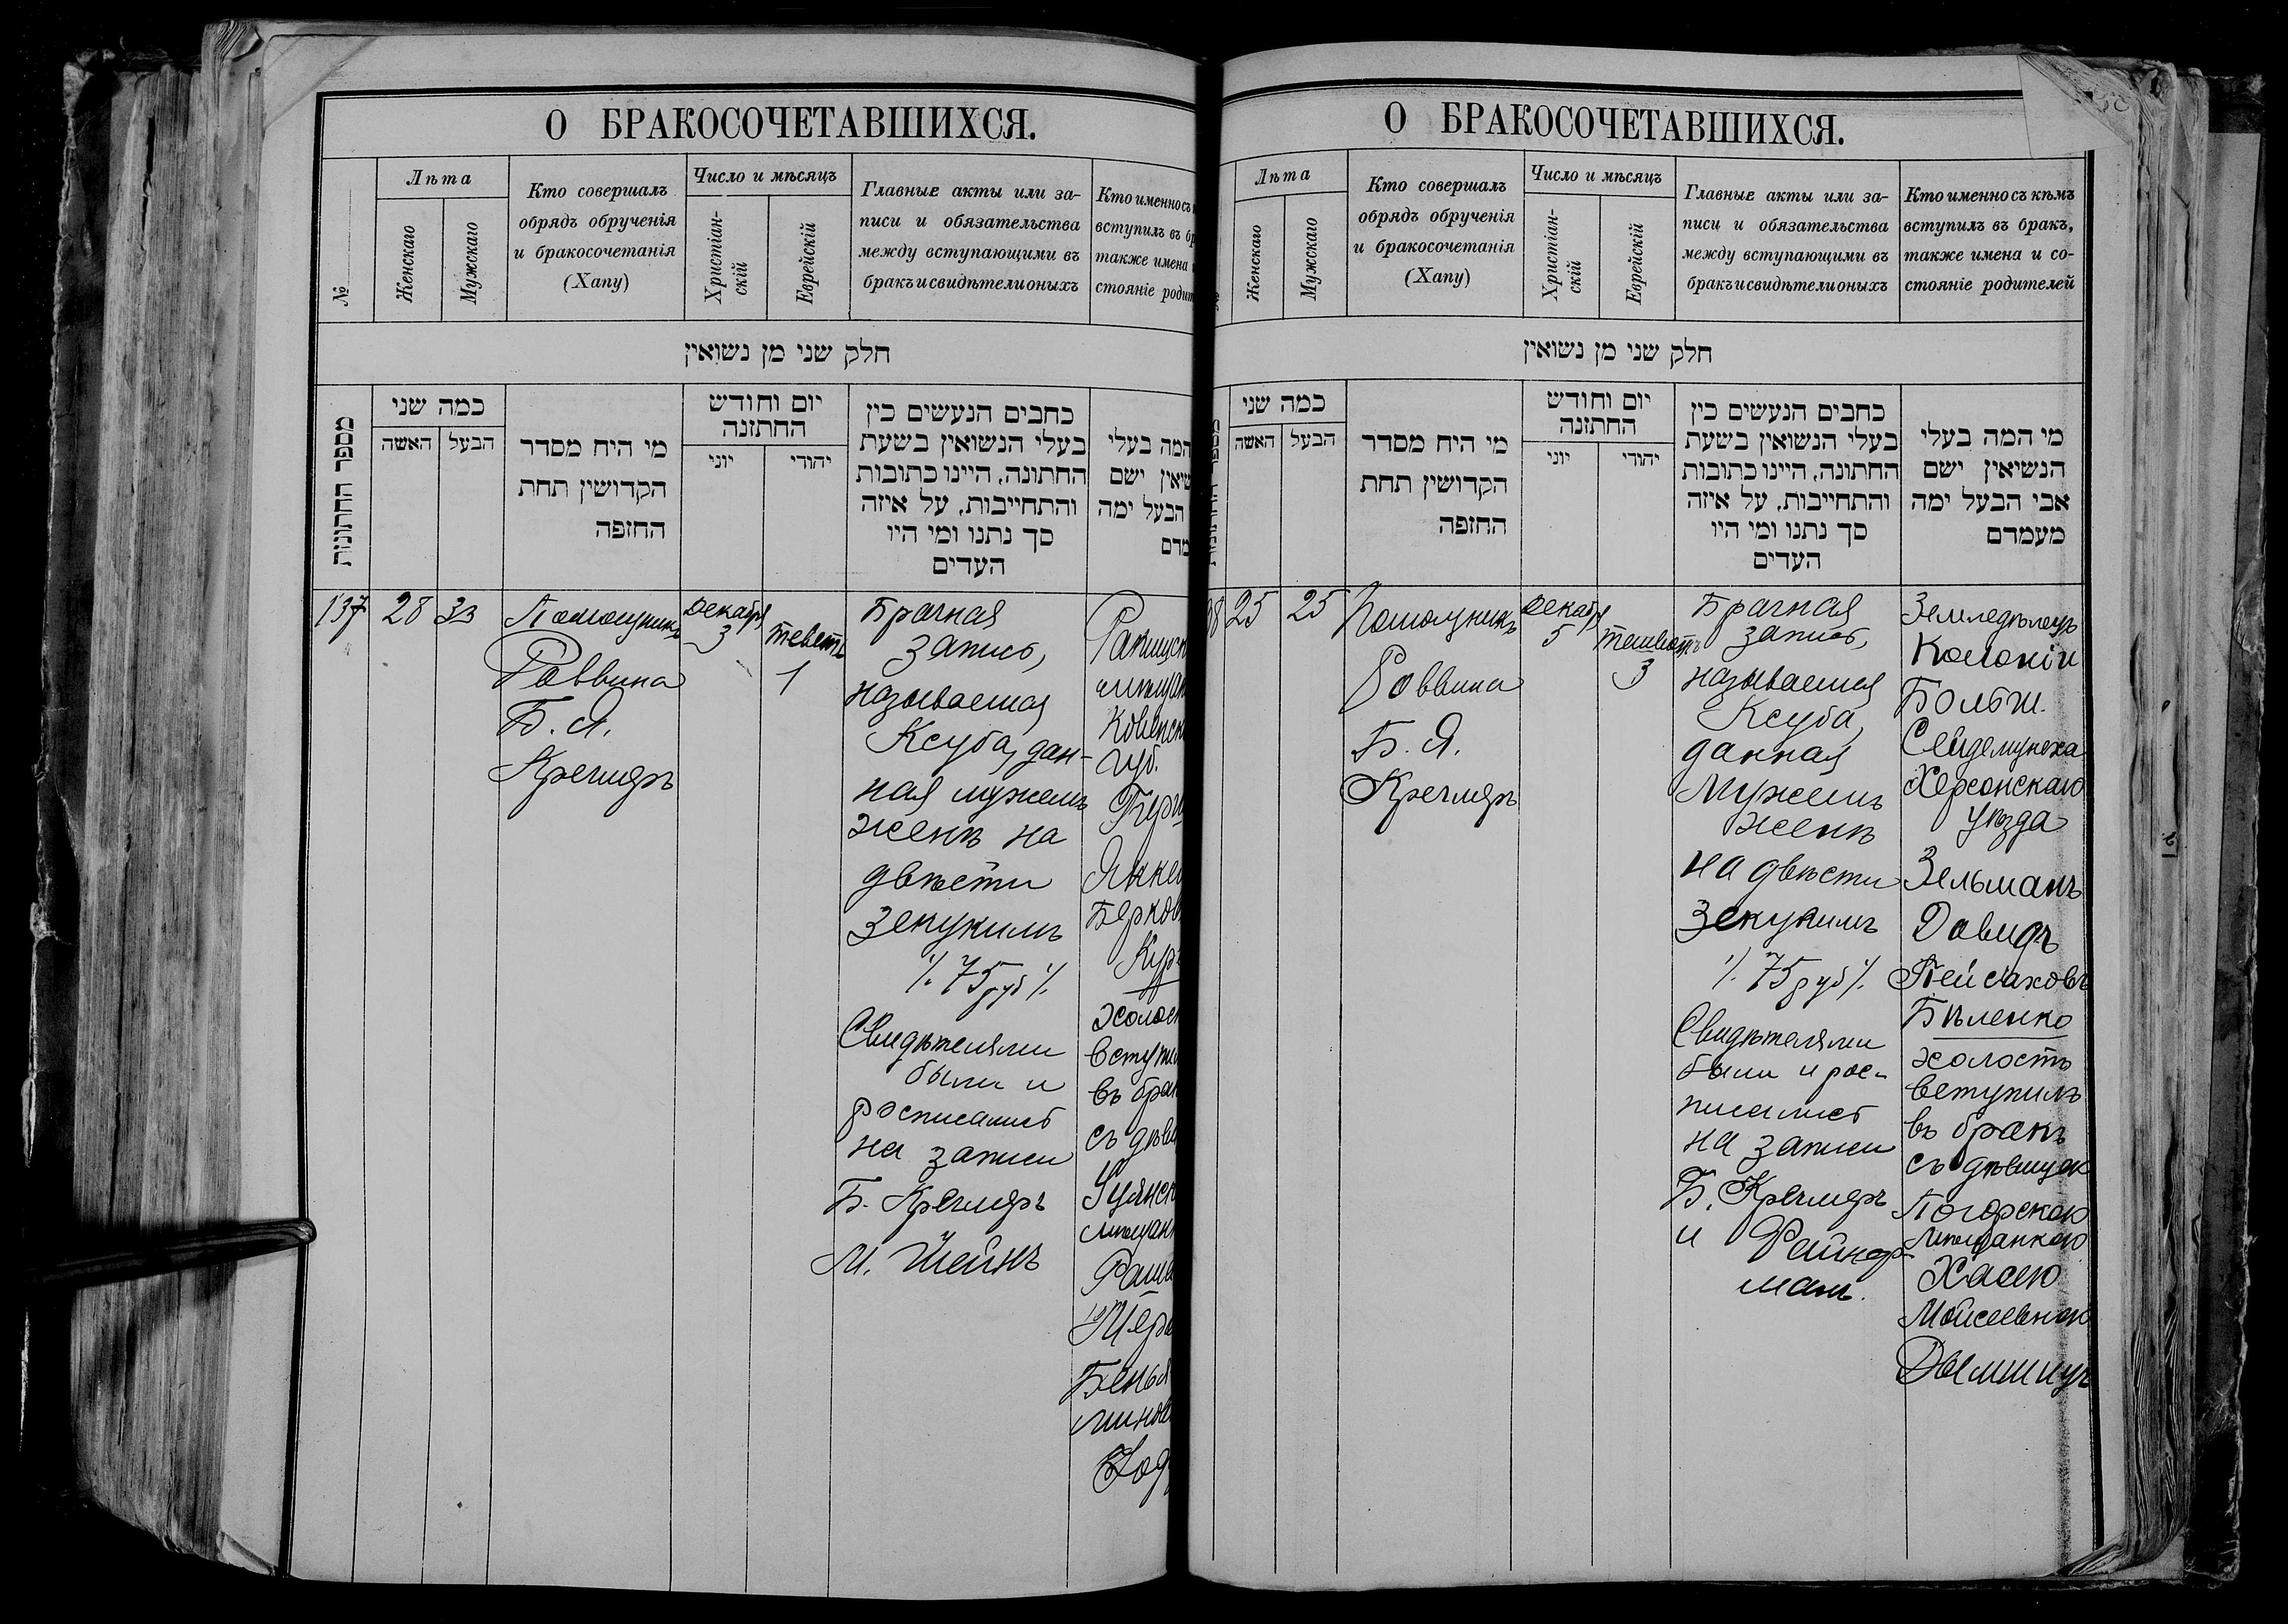 О БРАКОСОЧЕТАВШИХСЯ.
№
Лѣта
Женскаго
Мужскаго
Кто совершалъ
обрядъ обрученія
и бракосочетанія
(Хапу)
Число и мѣсяцъ
Христіан-
скій
Еврейскій
Главные акты или за-
писи и обязательства
между вступающими въ
бракъ и свидѣтели оныхъ
Кто именно съ
вступилъ въ бр
также имена
стояніе родит
חלק שני מן נשואין
מספר החתונות
כמה שני
האשה
הבעל
מי היח מסדר
הקדושין תחת
החזפה
יום וחודש
החתזנה
יוני
יהודי
כחבים הנעשים כין
בעלי הנשואין בשעת
החתונה, היינו כתובות
והתחייבות, על איזה
סך נתנו ומי היו
העדים
המה בעלי
שיאין ישם
הבעל ימה
מדם
137
28
33
Помощникъ
Раввина
Б. Я.
Кречмеръ
Декабря
3
Теветъ
1
Брачная
запись,
называемая
Ксуба, дан-
ная мужемъ
женѣ на
двѣсти
зекукимъ
٪ 75 руб ٪
Свидѣтелями
были и
росписались
на записи
Б. Кречмеръ
М. Шейнъ
Ракишск
мѣщан
Ковенск
губ.
Янкел
Берков
холост
вступил
въ брак
съ дѣви
мѣщанк
Бенья
минов
О БРАКОСОЧЕТАВШИХСЯ.
Лѣта
Женскаго
Мужскаго
Кто совершалъ
обрядъ обрученія
и бракосочетанія
(Хапу)
Число и мѣсяцъ
Христіан-
скій
Еврейскій
Главные акты или за-
писи и обязательства
между вступающими въ
бракъ и свидѣтели оныхъ
Кто именно съ кѣмъ
вступилъ въ бракъ,
также имена и со-
стояніе родителей
חלק שני מן נשואין
כמה שני
האשה
הבעל
מי היח מסדר
הקדושין תחת
החזפה
יום וחודש
החתזנה
יוני
יהודי
כחבים הנעשים כין
בעלי הנשואין בשעת
החתונה, היינו כתובות
והתחייבות, על איזה
סך נתנו ומי היו
העדים
מי המה בעלי
הנשיאין ישם
אבי הבעל ימה
מעמדם
8
25
25
Помощникъ
Раввина
Б. Я.
Кречмеръ
Декабря
5
3
Брачная
запись,
называемая
Ксуба,
данная
мужемъ
женѣ
на двѣсти
зекукимъ
٪ 75 руб ٪
Свидѣтелями
были и рос-
писались
на записи
Б. Кречмеръ
и Файнер-
манъ.
Земледѣлецъ
Колоніи
Больш.
Сейдеминуха
Херсонскаго
уѣзда
Зельманъ
Давидъ
Пейсаховъ
Бѣленко
холостъ
вступилъ
въ бракъ
съ дѣвицею
Погорскою
мѣщанкою
Хасею
Мойсеевною
Дымшицъ